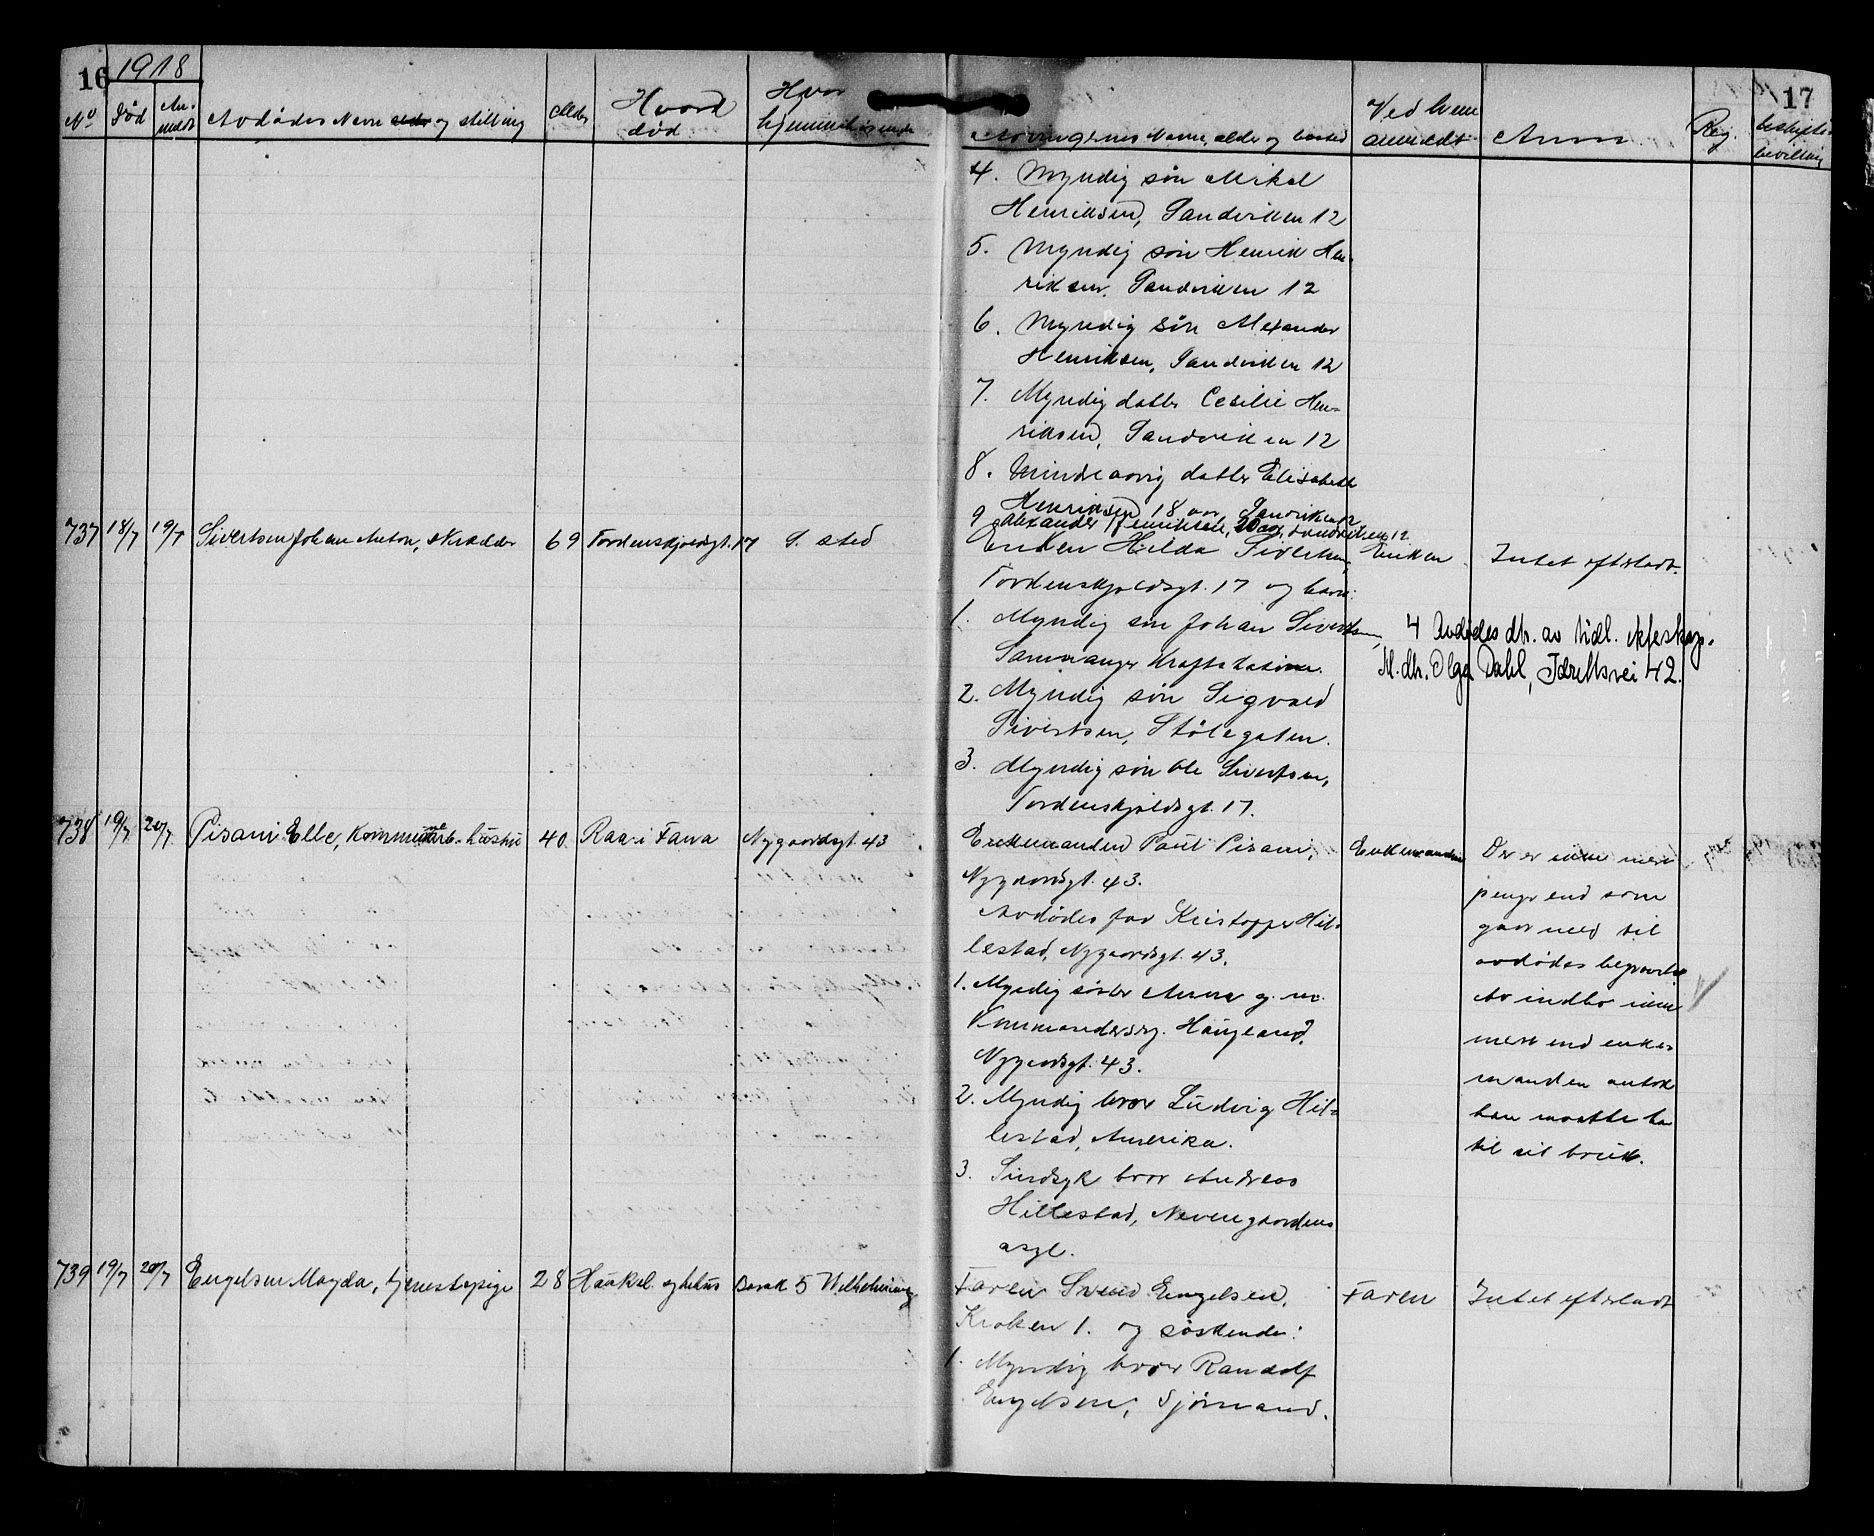 16 1918
No Død An-meldt Avdødes Navn og stilling Alder Hvor død Hvor hjemmehørende
17
Arvingernes Navne, alder og bosted Ved hvem anmeldt Anm Reg.
4. Myndig søn Mikal
Henriksen, Sandviken 12
5. Myndig søn Henrik Hen-
riksen, Sandviken 12
6. Myndig søn Alexander
Henriksen, Sandviken 12
7. Myndig datter Cesilie Hen-
riksen, Sandviken 12
8. Mindreaarig datter Elisabeth
Henriksen 18 aar, Sandviken 12
9 Alexander Henriksen, 20 aar, Sandviken 12.
737 18/7 19/7 Sivertsen Johan Anton, skrædder 69 Tordenskjoldsgt. 17 s. sted
Enken Hilda Sivertsen, Enken Intet efterladt.
Tordenskjoldsgt. 17 og barn:
1. Myndig søn Johan Sivertsen,
Samnanger Kraftstation.
4 Avdødes dtr. av tidl. ekteskap.
M. dtr. Olga Dahl, Idrettsvei 42.
2. Myndig søn Sigvald
Sivertsen, Stølegaten.
3. Myndig søn Ole Sivertsen,
Tordenskjoldsgt. 17.
738 19/7 20/7 Pisani Elle, Kommunearb. hustru 40 Raa i Fana Nygaardsgt. 43
Enkemanden Paul Pisani, Enkemanden
Nygaardsgt. 43.
Avdødes far Kristoffer Hil-
lestad, Nygaardsgt. 43.
1. Myndig søster Anna g. m.
Haugland,
Nygaardsgt. 43.
2. Myndig bror Ludvig Hil-
lestad, Amerika.
3. Sindsyk bror Andreas
Hillestad, Neevengaardens
asyl.
Der er ikke mere
penge end som
gaar med til
avdødes begravelse
Av indbo ikke
mere end enke-
manden antok
han maatte ha
til sit bruk.
739 19/7 20/7 Engelsen Magda, tjenestepige 28 Haukel. sykehus Barak 5
Faren Svend Engelsen, Faren Intet efterladt
Kroken 1. og søskende:
1. Myndig bror Randolf
Engelsen, Sjømand.